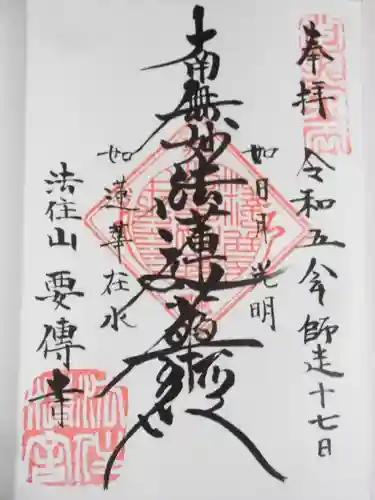 奉拝
令和五年師走十七日
如日月光明
南無妙法蓮華経
如蓮華在水
法住山 要傳寺